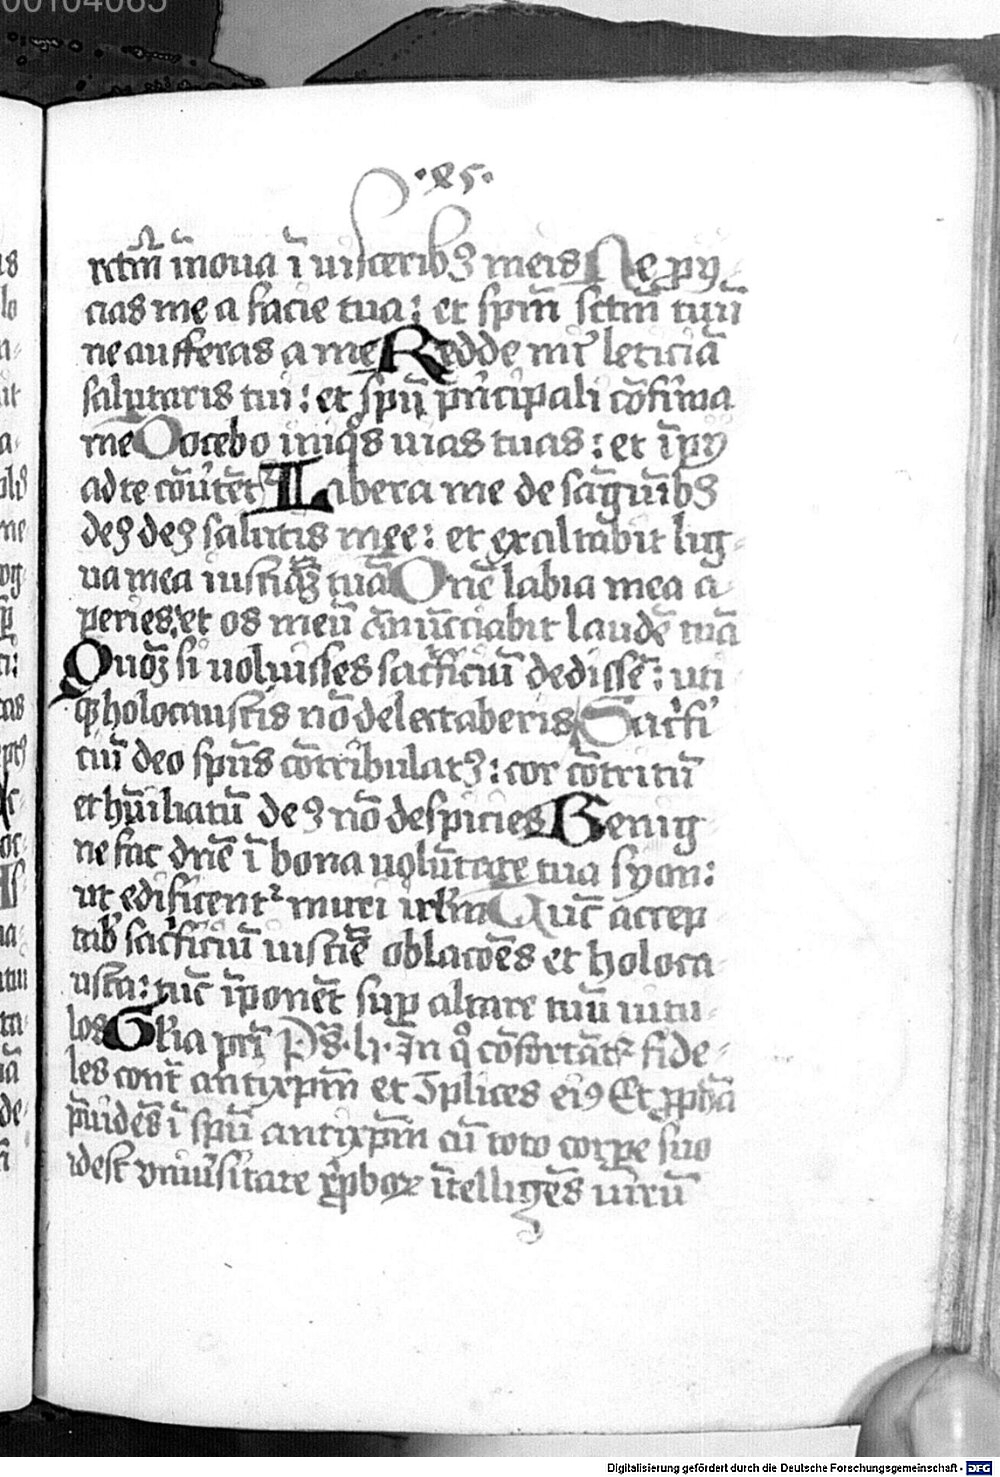 00104065
·85·
rctm̄ īnoua ī uisceribꝫ meis Ne ꝓy
cias me a facie tua: et spm̄ sctm̄ tuū
ne aufferas a me Redde mi' leticiā
salutaris tui: et spū p'ncipali cōfirma
me Docebo iniq's uias tuas: et īpy
ad te cōu'tēt' Libera me de sāguībꝫ
deꝫ deꝫ salutis mee: et exaltabit lig-
ua mea iusticiā tuā Dnē labia mea a-
peries: et os meū ānūcciabit laudē tuā
Quoꝫ si uoluisses sac'ficiū dedissē: uti
qꝫ holocaustis nō delectaberis Sac'fi
ciū deo spūs cōtribulatꝫ: cor cōtritū
et hūiliatū deꝫ nō despicies Benig
ne fac dnē ī bona uolūtate tua syon:
ut edificent' muri irl'm Tūc accep
tab' sac'ficiū iusticiē oblacōēs et holoca-
usta: tūc īponēt sup altare tuū uitu-
los Gl'ia pr̄i Ps· li· In q° cōfortāt' fide-
les cont̄ antixp̄m et 9plices ei9 Et ꝓph'a
p'uidēs ī spū antixp̄m cū toto corpe suo
idest vniu'sitate ꝓphoꝝ ītelligēs uirū
Digitalisierung gefördert durch die Deutsche Forschungsgemeinschaft - DFG